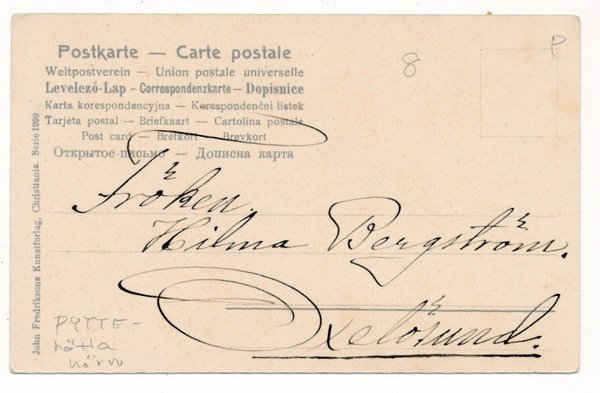 Postkarte — Carte postale
Weltpostverein — Union postale universelle
Levelező-Lap — Correspondenzkarte — Dopisnice
Karta korespondencyjna — Korespondenční listek
Tarjeta postal — Briefkaart — Cartolina postale
Post card — Brefkort — Brevkort
Открытое письмо — Дописна карта
8
P
Fröken.
Hilma Bergström.
Oxelösund.
John Fredriksons Kunstforlag, Christiania. Serie 1999
PYTTE-